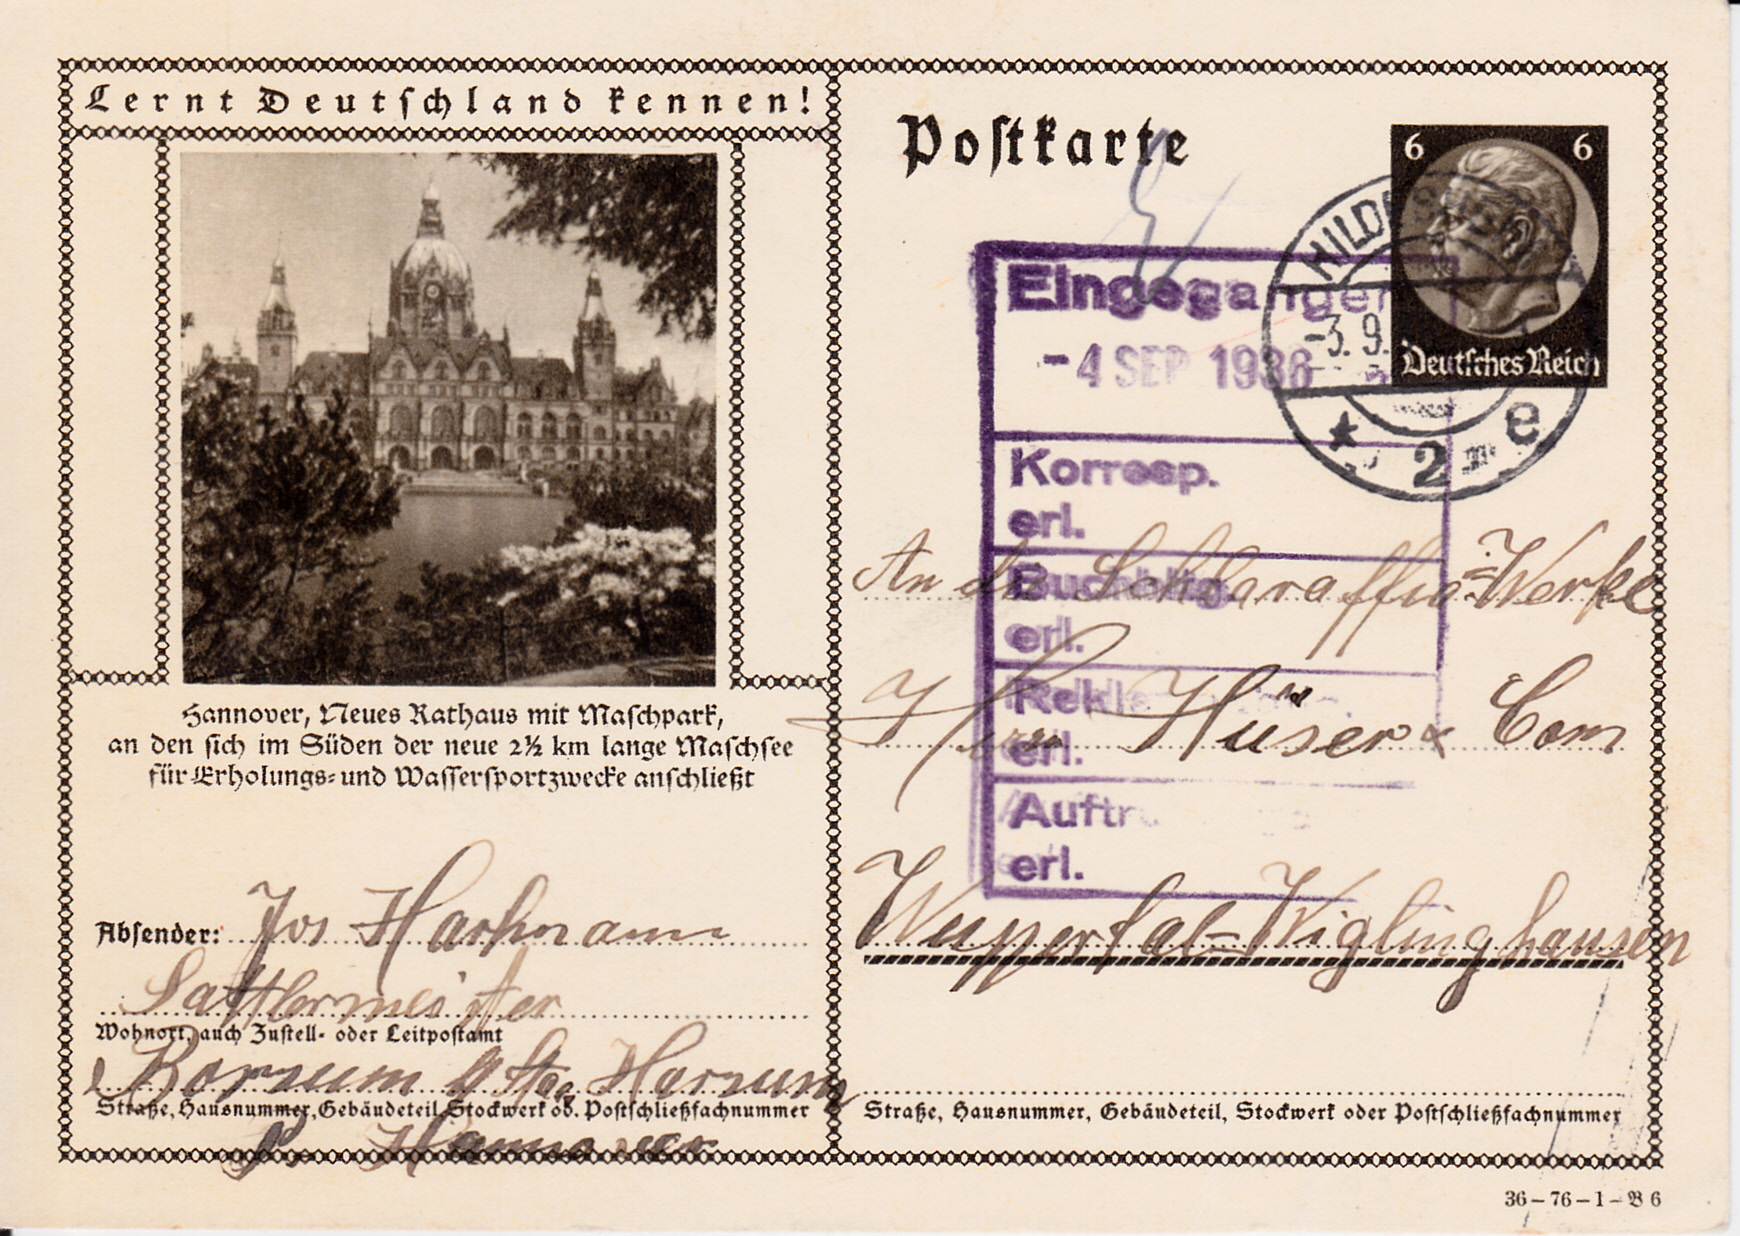 Lernt Deutschland kennen!
Hannover, Neues Rathaus mit Maschpark,
an den sich im Süden der neue 2½ km lange Maschsee
für Erholungs- und Wassersportzwecke anschließt
Absender: Jos Hartmann
Sattlermeister
Wohnort, auch Zustell- oder Leitpostamt
Borsum Harsum
Straße, Hausnummer, Gebäudeteil, Stockwerk od. Postschließfachnummer
Hannover
Postkarte
6 6
Deutsches Reich
HILD
-3. 9.
2 e
Eingegangen
-4 SEP 1936
Korresp.
erl.
Buchhltg.
erl.
Rekla
erl.
Auftr
erl.
An die Schlaraffia-Werke
Hüser & Com
Wuppertal-Wiglinghausen
Straße, Hausnummer, Gebäudeteil, Stockwerk oder Postschließfachnummer
36-76-1-B 6